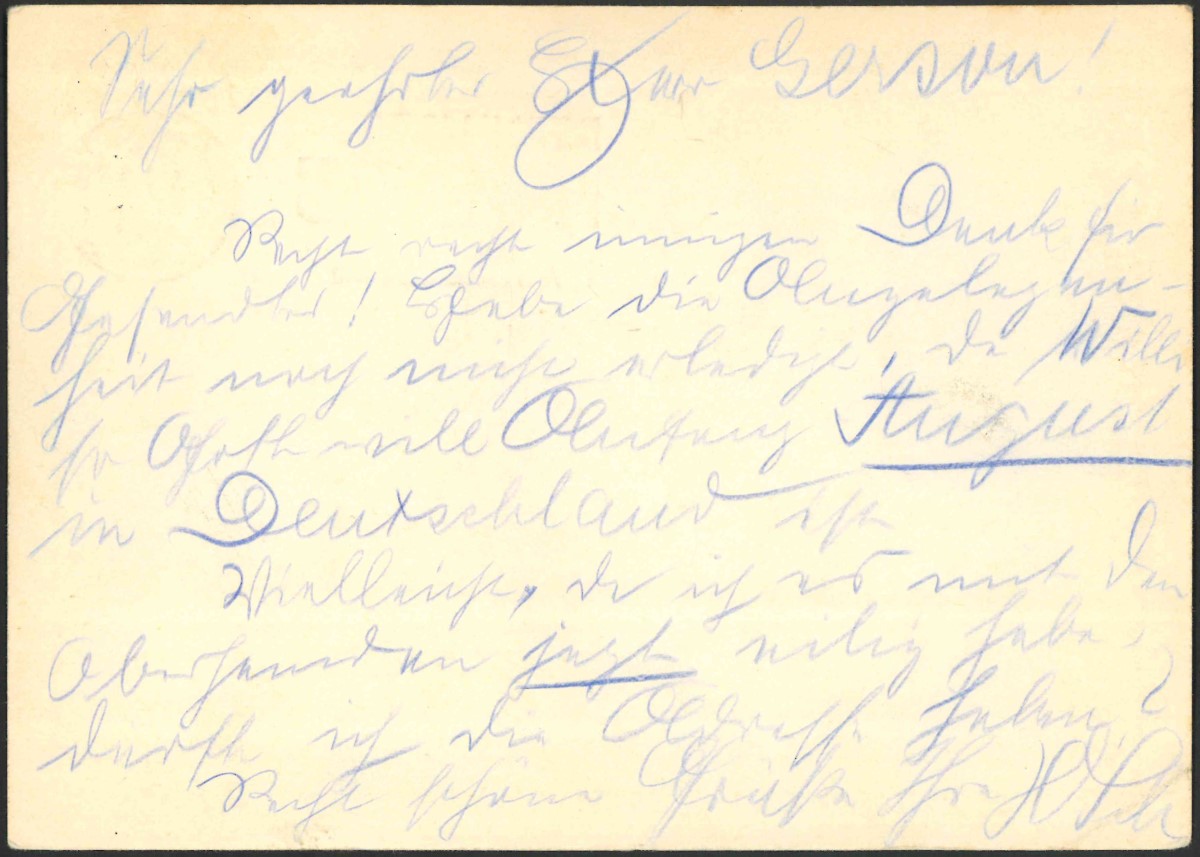 Sehr geehrter Herr Gerson!
Recht recht innigen Dank für
Gesendtes! Habe die Angelegen-
heit noch nicht erledigt, da Willi
so Gott will Anfang August
in Deutschland ist
Vielleicht, da ich es mit den
Oberhemden jetzt eilig habe,
dürfte ich die Adresse haben?
Recht schöne Grüße Ihre